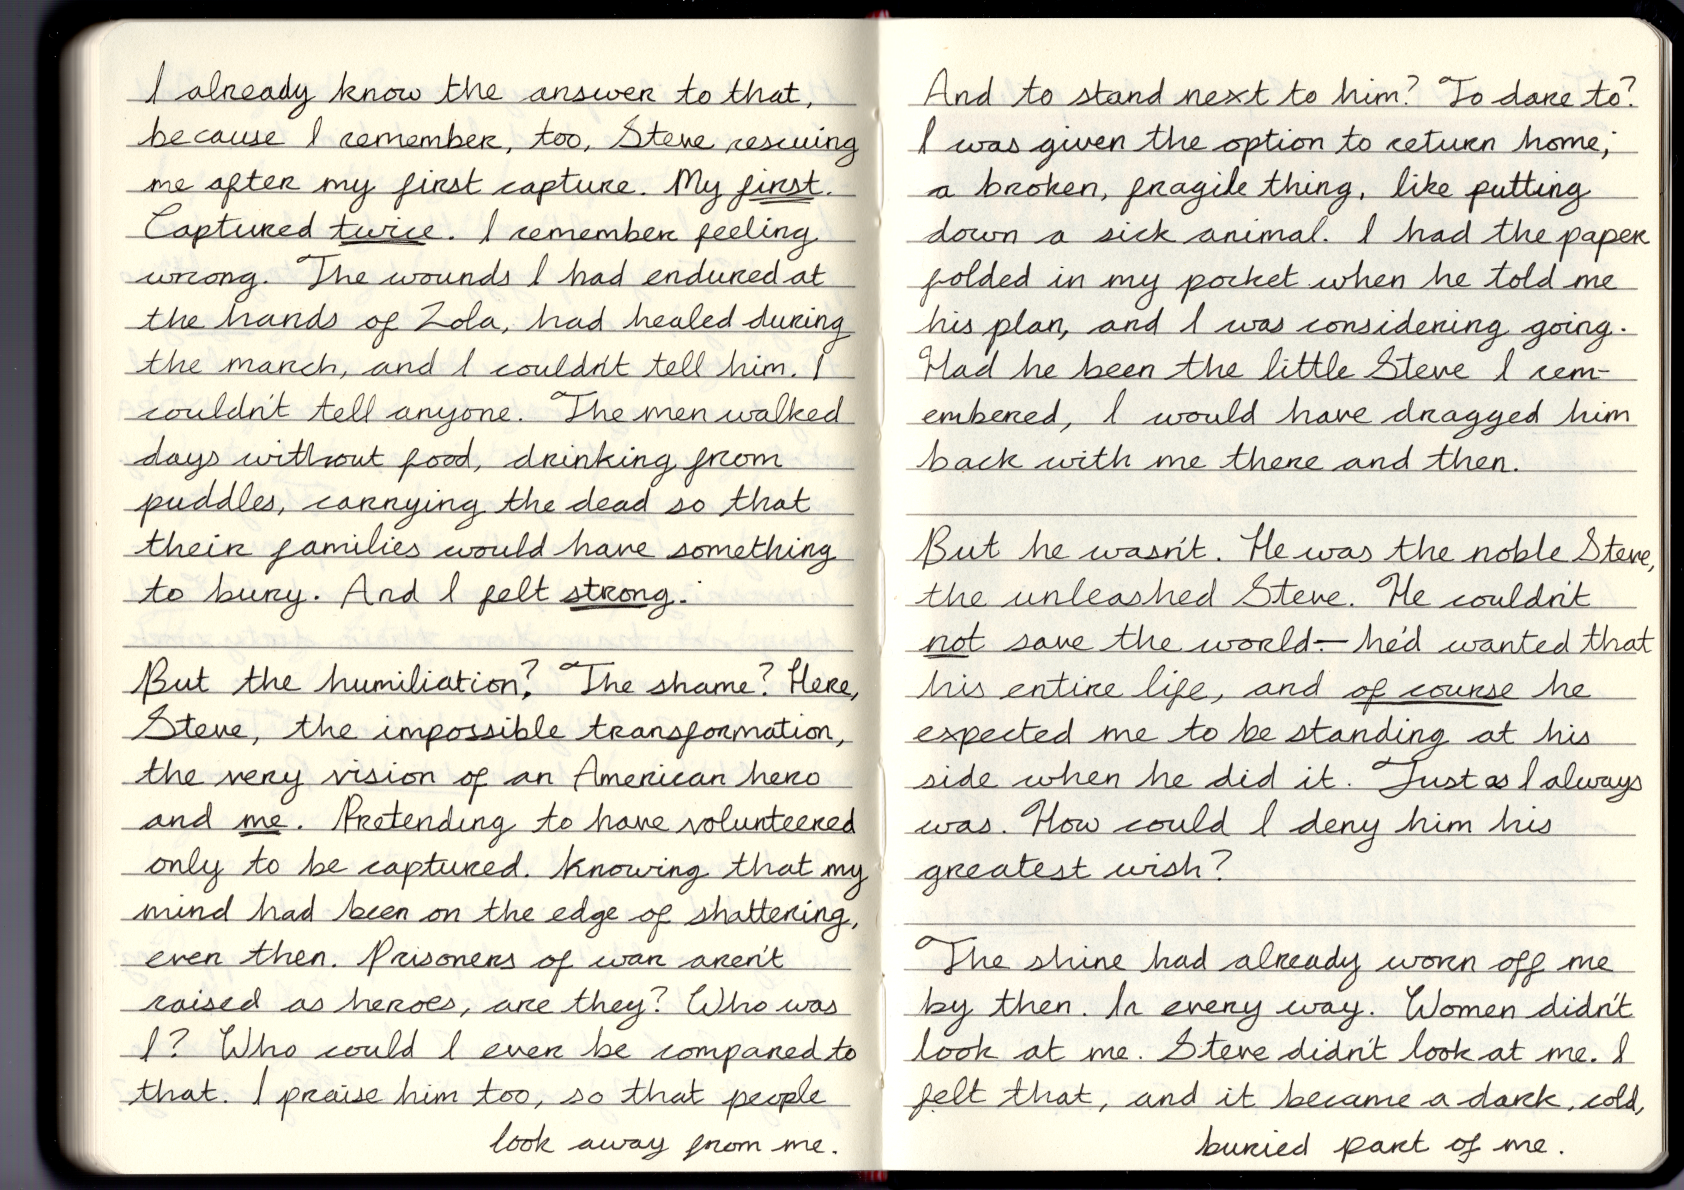 I already know the answer to that,
because I remember, too, Steve rescuing
me after my first capture. My first.
Captured twice. I remember feeling
wrong. The wounds I had endured at
the hands of Zola, had healed during
the march, and I couldn't tell him. I
couldn't tell anyone. The men walked
days without food, drinking from
puddles, carrying the dead so that
their families would have something
to bury. And I felt strong.
But the humiliation? The shame? Here,
Steve, the impossible transformation,
the very vision of an American hero
and me. Pretending to have volunteered
only to be captured. Knowing that my
mind had been on the edge of shattering,
even then. Prisoners of war aren't
raised as heroes, are they? Who was
I? Who could I ever be compared to
that. I praise him too, so that people
look away from me.
And to stand next to him? To dare to?
I was given the option to return home;
a broken, fragile thing, like putting
down a sick animal. I had the paper
folded in my pocket when he told me
his plan, and I was considering going.
Had he been the little Steve I rem-
embered, I would have dragged him
back with me there and then.
But he wasn't. He was the noble Steve,
the unleashed Steve. He couldn't
not save the world — he'd wanted that
his entire life, and of course he
expected me to be standing at his
side when he did it. Just as I always
was. How could I deny him his
greatest wish?
The shine had already worn off me
by then. In every way. Women didn't
look at me. Steve didn't look at me. I
felt that, and it became a dark, cold,
buried part of me.